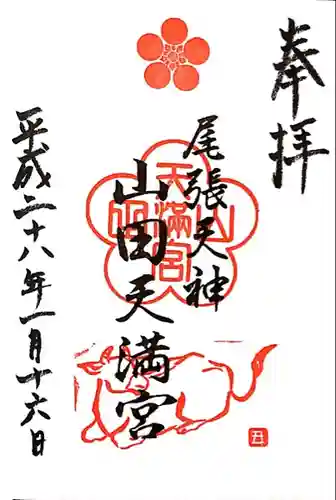 奉拝
尾張天神
山田天満宮
平成二十八年一月十六日
山田
天満宮
丑